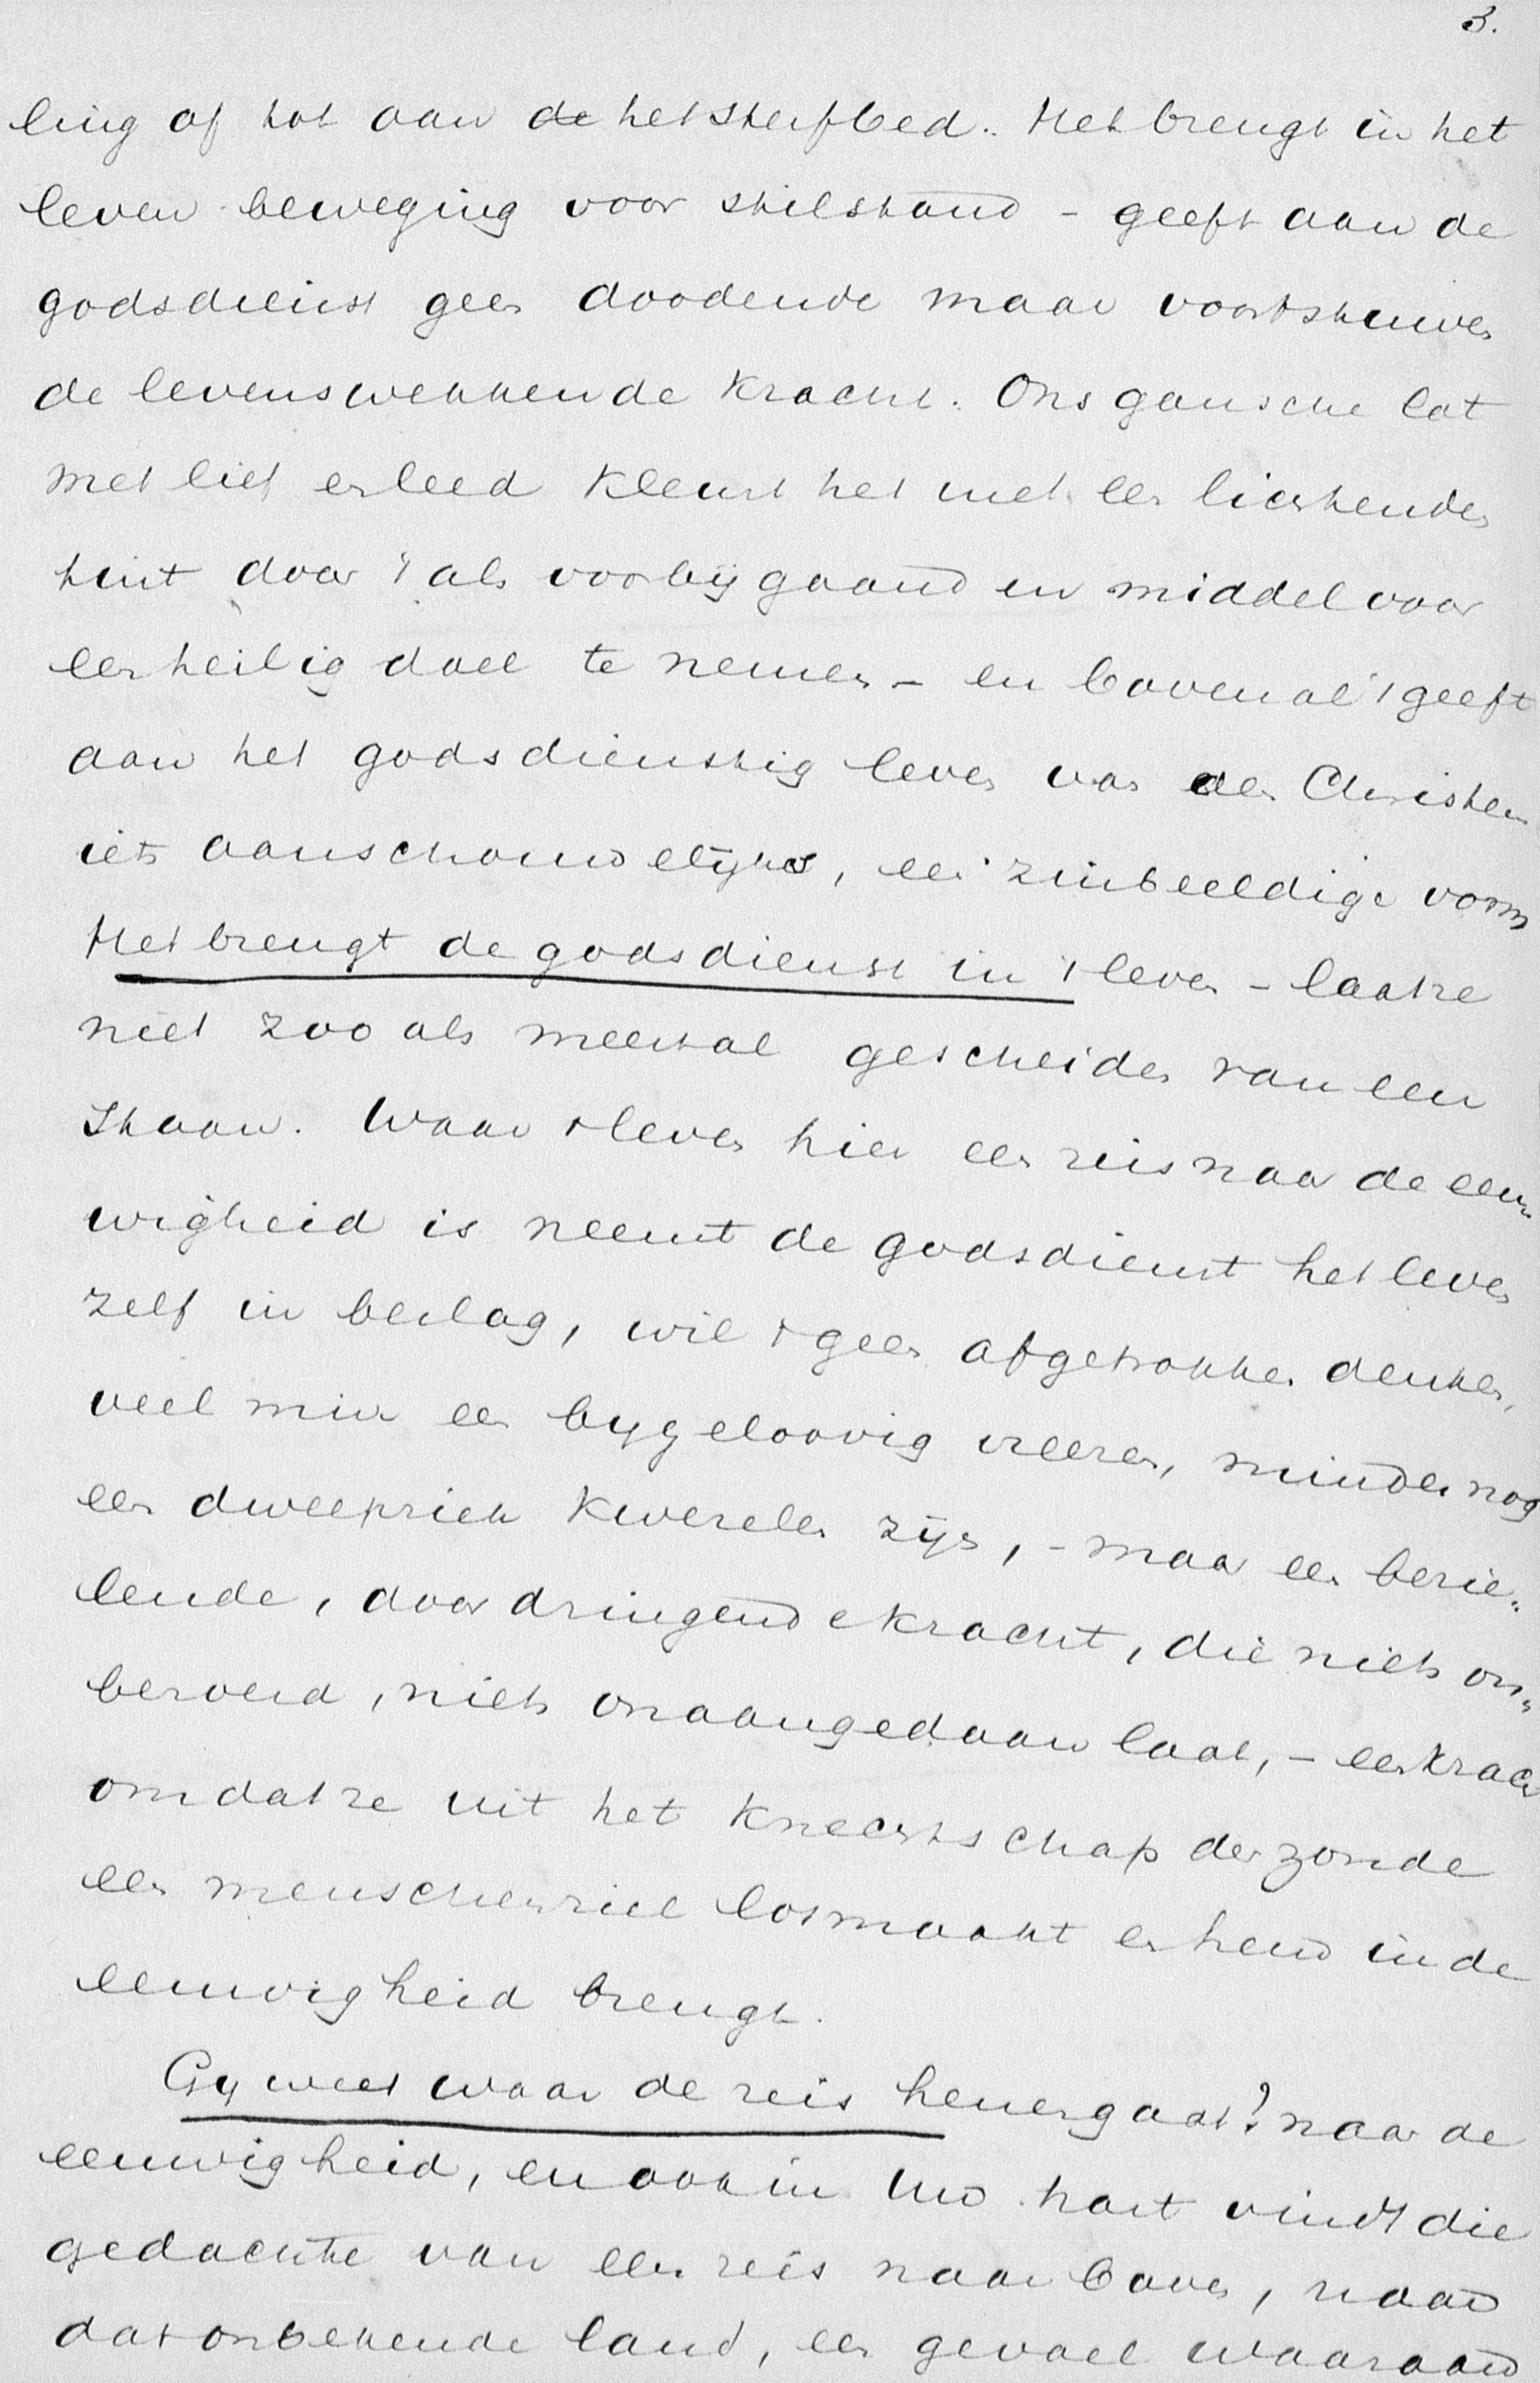 3.
ling af tot aan de het sterfbed. Het brengt in het
leven beweging voor stilstand - geeft aan de
godsdienst geen doodende maar voortstuwen
de levenswekkende kracht. Ons gansche lot
met lief en leed kleurt het met een lichtenden
tint door 't als voorbijgaand en middel voor
een heilig doel te nemen - en bovenal 't geeft
aan het godsdienstig leven van den Christen
iets aanschouwelijks, een zinbeeldige vorm
Het brengt de godsdienst in 't leven - laat ze
niet zooals meestal gescheiden van een
staan. Waar 't leven hier een reis naar de eeu-
wigheid is neemt de godsdienst het leven
zelf in beslag, wil 't geen afgetrokken denken,
veel min een bygeloovig vreezen, minder nog
een dweepziek kwezelen zijn, - maar een bezie-
lende, doordringende kracht, die niets on-
beroerd, niets onaangedaan laat, - een kracht
omdat ze uit het knechtschap der zonde
een menschenziel losmaakt en hem in de
eeuwigheid brengt.
Gy weet waar de reis henengaat? naar de
eeuwigheid, en ook in Uw hart vindt die
gedachte van een reis naar boven, naar
dat onbekende land, een gevoel waaraan